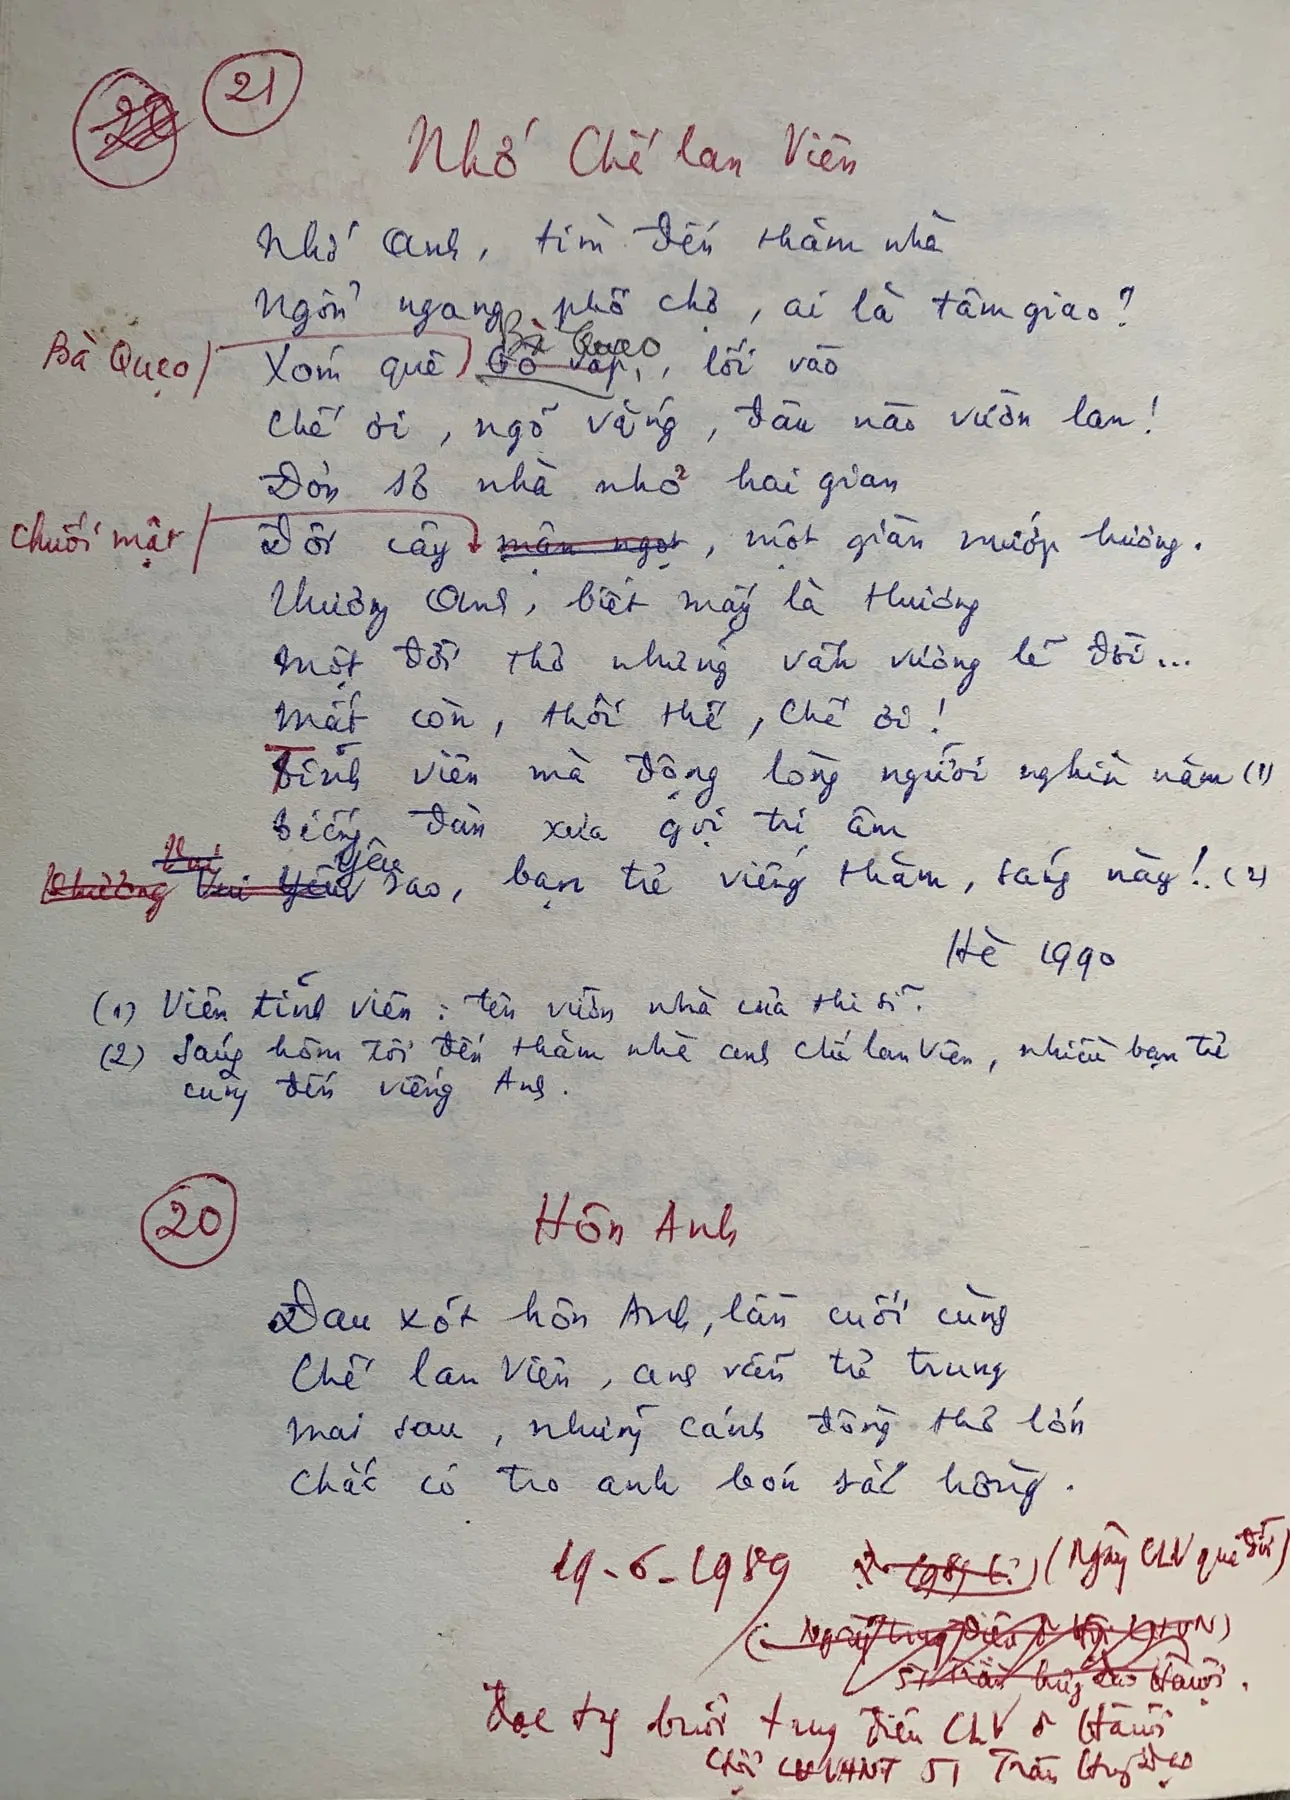 21
Nhớ Chế Lan Viên
Nhớ Anh, tìm đến thăm nhà
Ngổn ngang phố chợ, ai là tâm giao?
Bà Quẹo Xóm quê Gò Vấp, Bà Quẹo, lối vào
Chế ơi, ngõ vắng, đâu nào vườn lan!
Đơn sơ nhà nhỏ hai gian
Chuối mật Đôi cây mận ngọt, một giàn mướp hương.
Thương Anh, biết mấy là thương
Một đời thơ những vấn vương lẽ đời...
Mất còn, thôi thế, Chế ơi!
Tĩnh viên mà động lòng người nghìn năm (1)
Tiếng đàn xưa gọi tri âm
Thương Vui Vui yêu yêu sao, bạn trẻ viếng thăm, sáng nay!. (2)
Hè 1990
(1) Viên tĩnh viên: tên vườn nhà của thi sĩ.
(2) Sáng hôm tôi đến thăm nhà anh Chế Lan Viên, nhiều bạn trẻ
cũng đến viếng Anh.
20
Hôn Anh
Đau xót hôn Anh, lần cuối cùng
Chế Lan Viên, anh vẫn trẻ trung
Mai sau, những cánh đồng thơ lớn
Chắc có tro anh bón sắc hồng.
19-6-1989 (Ngày CLV qua đời)
51 Trần Hưng Đạo Hà Nội.
Đọc tại buổi truy điệu CLV ở Hà Nội
51 Trần Hưng Đạo